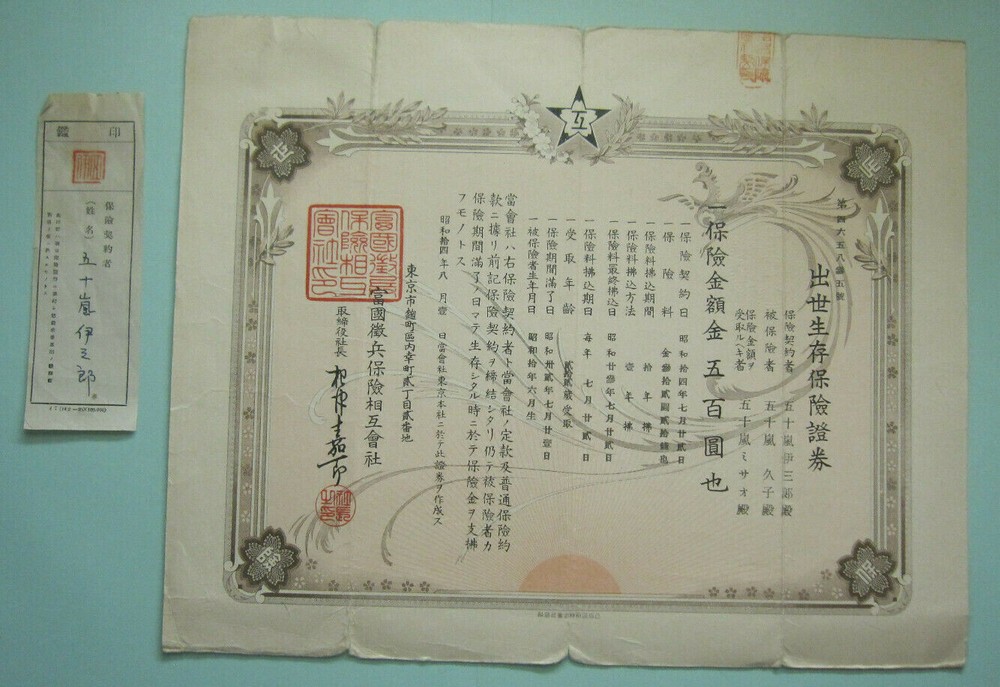 互
第四六五八參五號
出世生存保險證券
保險契約者 五十嵐伊三郎殿
被保險者 五十嵐 久子殿
保險金額ヲ受取ルベキ者 五十嵐ミサオ殿
一保險金額金 五百圓也
一保險契約日 昭和拾四年七月廿貳日
一保險料 金參拾貳圓貳拾錢也
一保險料拂込期間 拾年
一保險料拂込方法 壹年拂
一保險料最終拂込日 昭和廿參年七月廿貳日
一保險料拂込期日 每年 七月廿貳日
一受取年齡 貳拾貳歲受取
一保險期間滿了日 昭和卅貳年七月廿壹日
一被保險者生年月日 昭和拾年六月生
當會社ハ右保險契約者ト當會社ノ定款及普通保險約
款ニ據リ前記保險契約ヲ締結シタリ仍テ被保險者カ
保險期間滿了ノ日マテ生存シタル時ニ於テ保險金ヲ支拂
フモノトス
昭和拾四年八月壹日當會社東京本社ニ於テ此證券ヲ作成ス
東京市麴町區內幸町貳丁目貳番地
富國徵兵保險相互會社
取締役社長
富國徵兵
保險相互
會社印
社長
之印
印鑑
保險契約者
(姓名) 五十嵐伊三郎